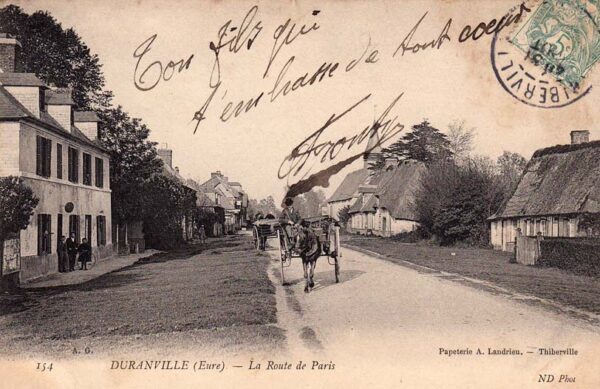 Ton fils qui
t'embrasse de tout coeur
THIBERVILLE
A. G.
154 DURANVILLE (Eure) — La Route de Paris
Papeterie A. Landrieu. — Thiberville
ND Phot